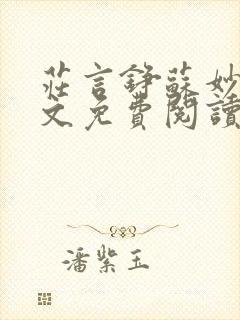 莊言錚蘇妙
文免費閱讀
潘紫玉